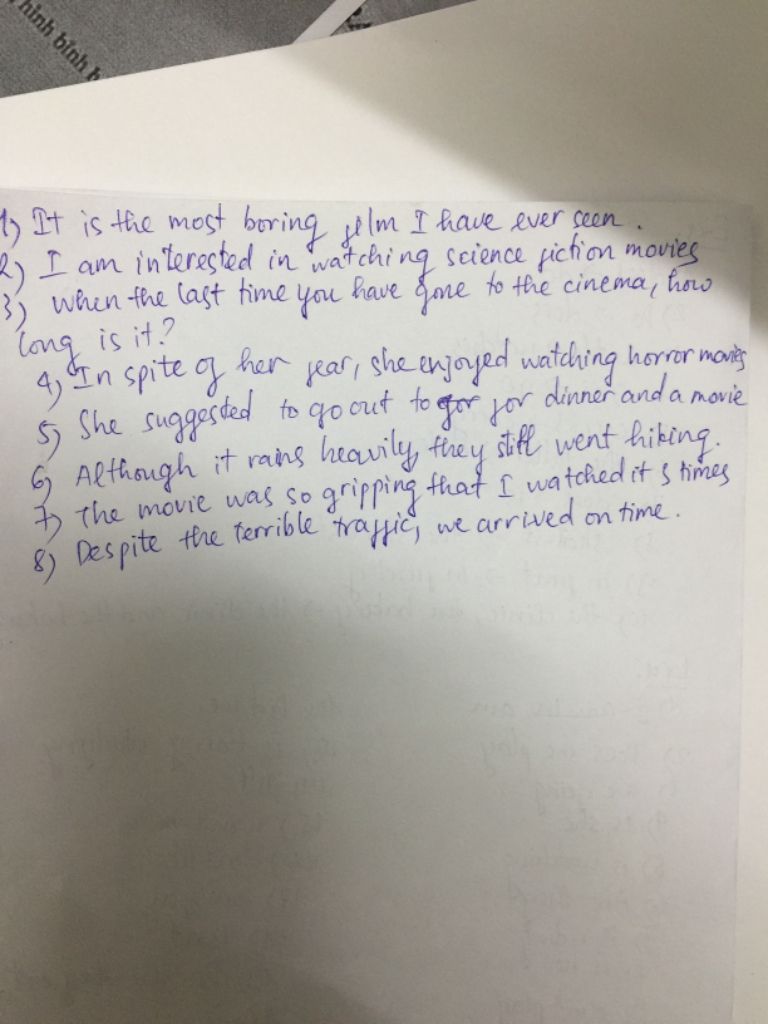 hình bình h
1) It is the most boring film I have ever seen.
2) I am interested in watching science fiction movies
3) when the last time you have gone to the cinema, how
long is it?
4) In spite of her fear, she enjoyed watching horror movies
5) She suggested to go out to for for dinner and a movie
6) Although it rains heavily, they still went hiking.
7) The movie was so gripping that I watched it 3 times
8) Despite the terrible traffic, we arrived on time.